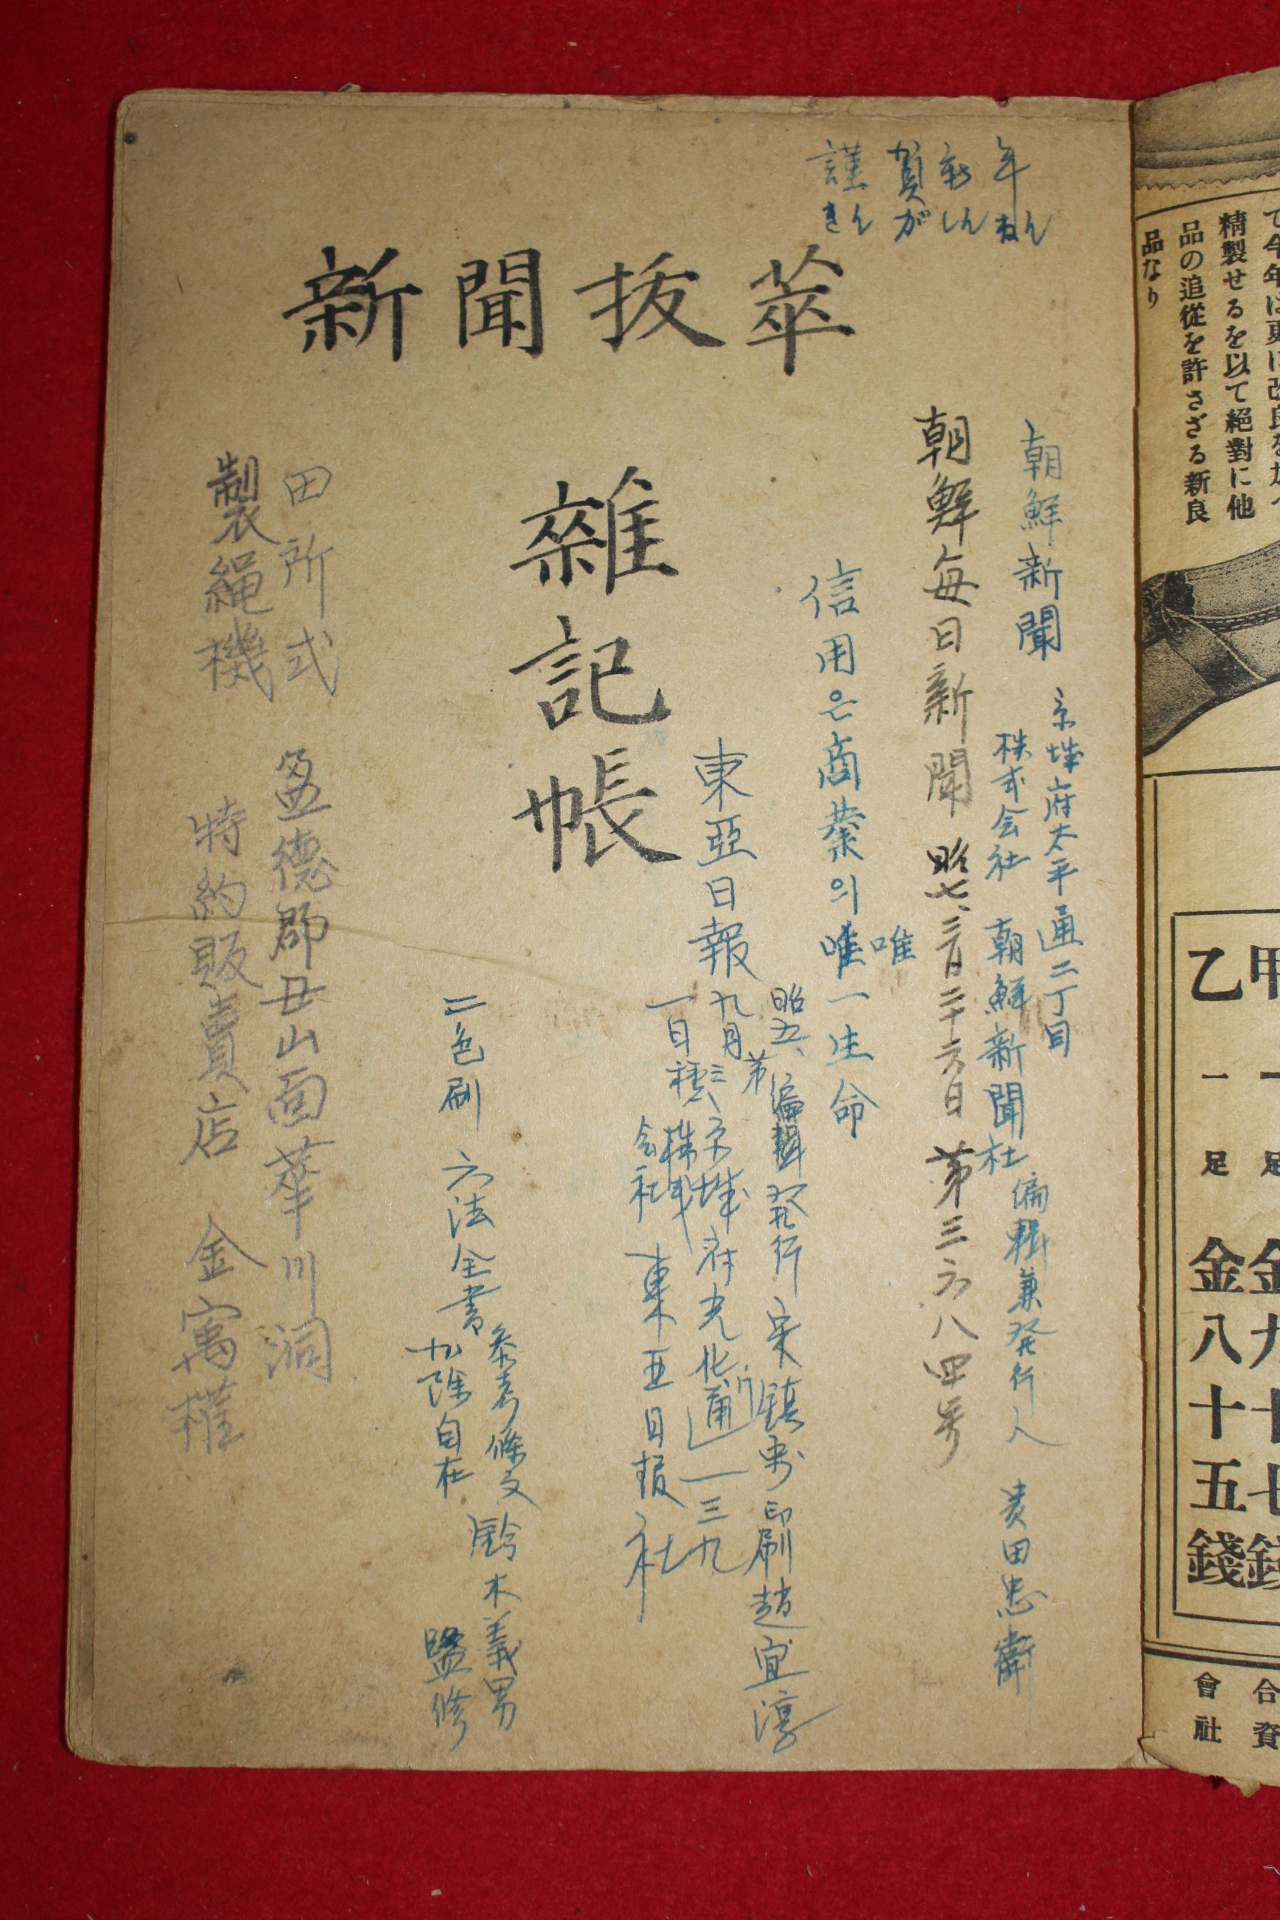 謹賀新年
きんがしんねん
新聞抜萃
雜記帳
朝鮮新聞
京城府太平通二丁目
株式会社 朝鮮新聞社
編輯兼発行人
田忠衛
朝鮮每日新聞 昭七、三月二十六日 第三六八四号
信用은商業의唯一生命
唯
東亞日報
昭五、九月一日
第 種
編輯発行 宋鎮禹 印刷 趙宜淳
三、京城府光化通一三九
株式会社 東亜日報社
二色刷 六法全書
参考條文
加除自在
鈴木義男
監修
田所式
製繩機
盈德郡丑山面華川洞
特約販賣店 金寓權
て今年は更に改良を加へ
精製せるを以て絕對に他
品の追從を許さざる新良
品なり
甲 一足 金九十七錢
乙 一足 金八十五錢
合資
會社